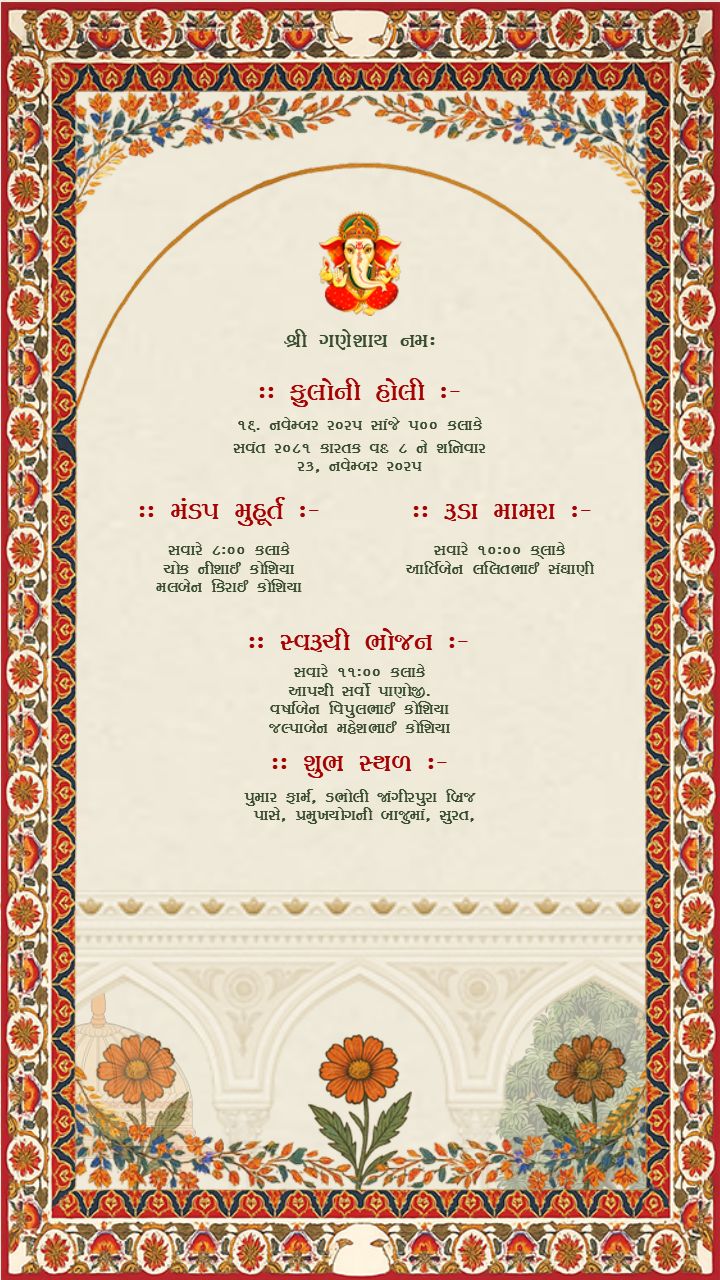 શ્રી ગણેશાય નમઃ
:: ફુલોની હોલી :-
૧૬. નવેમ્બર ૨૦૨૫ સાંજે ૫૦૦ કલાકે
સવંત ૨૦૮૧ કારતક વદ ૮ ને શનિવાર
૨૩, નવેમ્બર ૨૦૨૫
:: મંડપ મુહૂર્ત :-
સવારે ૮:૦૦ કલાકે
ચોક નીશાઈ કોશિયા
મલબેન કિરાઈ કોશિયા
:: રૂડા મામરા :-
સવારે ૧૦:૦૦ કલાકે
આર્તિબેન લલિતભાઈ સંઘાણી
:: સ્વરૂચી ભોજન :-
સવારે ૧૧:૦૦ કલાકે
આપથી સર્વો પાણોજી.
વર્ષાબેન વિપુલભાઈ કોશિયા
જલ્પાબેન મહેશભાઈ કોશિયા
:: શુભ સ્થળ :-
પુમાર ફાર્મ, ડભોલી જાંગીરપુરા બ્રિજ
પાસે, પ્રમુખયોગની બાજુમાં, સુરત,